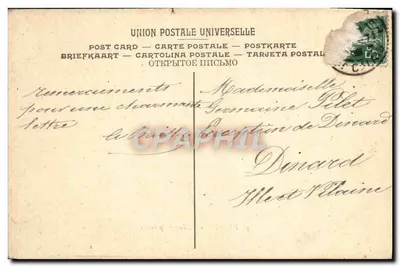 UNION POSTALE UNIVERSELLE
POST CARD — CARTE POSTALE — POSTKARTE
BRIEFKAART — CARTOLINA POSTALE — TARJETA POSTAL
ОТКРЫТОЕ ПИСЬМО
remerciements
pour une charmante
lettre
Mademoiselle
Germaine Pilet
de Dinard
Dinard
Ille et Vilaine
CARPHIL